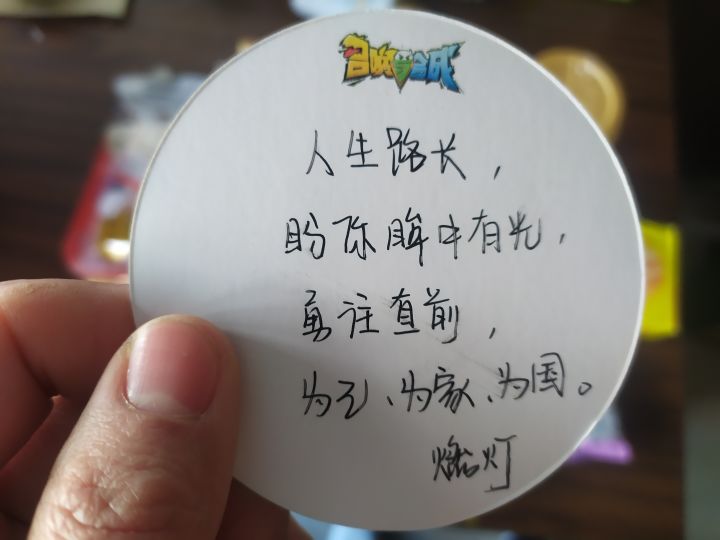 召唤与合成
人生路长，
盼你眸中有光，
勇往直前，
为己、为家、为国。
燃灯